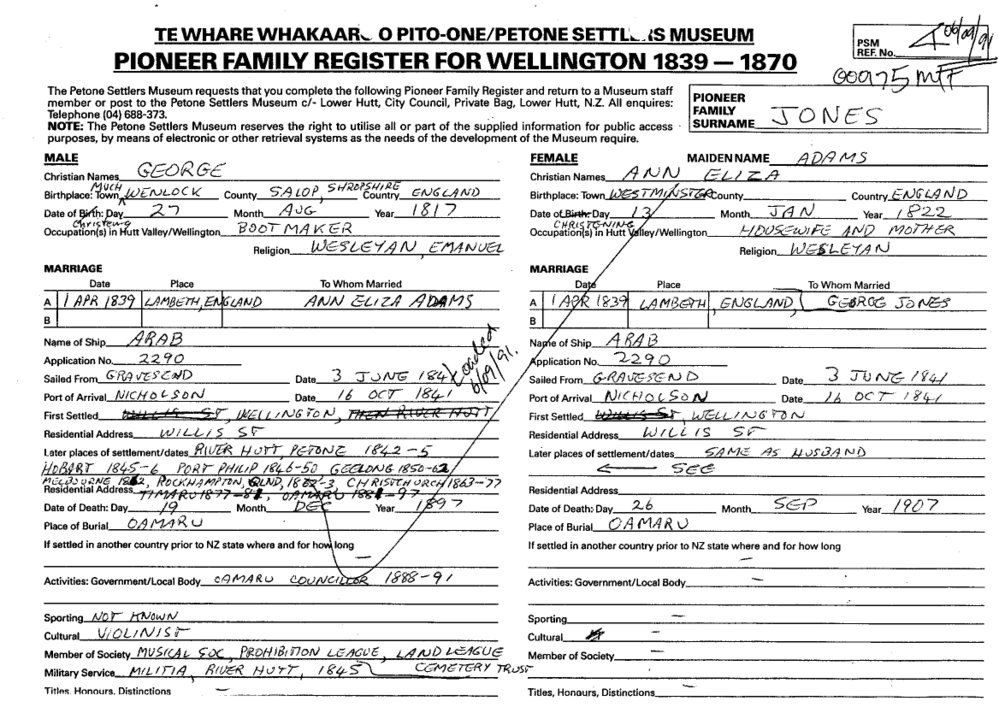 TE WHARE WHAKAAR O PITO-ONE/PETONE SETTL IS MUSEUM
PIONEER FAMILY REGISTER FOR WELLINGTON 1839 — 1870
PSM
REF. No. 4 06/09/91
00975 MFF
The Petone Settlers Museum requests that you complete the following Pioneer Family Register and return to a Museum staff
member or post to the Petone Settlers Museum c/- Lower Hutt, City Council, Private Bag, Lower Hutt, N.Z. All enquires:
Telephone (04) 688-373.
NOTE: The Petone Settlers Museum reserves the right to utilise all or part of the supplied information for public access
purposes, by means of electronic or other retrieval systems as the needs of the development of the Museum require.
PIONEER
FAMILY
SURNAME JONES
MALE
Christian Names GEORGE
Birthplace: Town MUCH WENLOCK County SALOP, SHROPSHIRE Country ENGLAND
Date of Birth: Day 27 Month AUG Year 1817
Christening
Occupation(s) in Hutt Valley/Wellington BOOT MAKER
Religion WESLEYAN, EMANUEL
MARRIAGE
Date Place To Whom Married
A 1 APR 1839 LAMBETH, ENGLAND ANN ELIZA ADAMS
B
Name of Ship ARAB
Application No. 2290
Sailed From GRAVESEND Date 3 JUNE 1841
Loaded 6/09/91.
Port of Arrival NICHOLSON Date 16 OCT 1841
First Settled WILLIS ST, WELLINGTON, THEN RIVER HUTT
Residential Address WILLIS ST
Later places of settlement/dates RIVER HUTT, PETONE 1842-5
HOBART 1845-6 PORT PHILIP 1846-50 GEELONG 1850-62
MELBOURNE 1862, ROCKHAMPTON, QLND, 1862-3 CHRISTCHURCH 1863-77
Residential Address TIMARU 1877-81, OAMARU 1881-97
Date of Death: Day 19 Month DEC Year 1897
Place of Burial OAMARU
If settled in another country prior to NZ state where and for how long
—
Activities: Government/Local Body OAMARU COUNCILLOR 1888-91
Sporting NOT KNOWN
Cultural VIOLINIST
Member of Society MUSICAL SOC, PROHIBITION LEAGUE, LAND LEAGUE
CEMETERY TRUST
Military Service MILITIA, RIVER HUTT, 1845
Titles, Honours, Distinctions —
FEMALE MAIDEN NAME ADAMS
Christian Names ANN ELIZA
Birthplace: Town WESTMINSTER County Country ENGLAND
Date of Birth: Day 13 Month JAN Year 1822
CHRISTENING
Occupation(s) in Hutt Valley/Wellington HOUSEWIFE AND MOTHER
Religion WESLEYAN
MARRIAGE
Date Place To Whom Married
A 1 APR 1839 LAMBETH, ENGLAND, GEORGE JONES
B
Name of Ship ARAB
Application No. 2290
Sailed From GRAVESEND Date 3 JUNE 1841
Port of Arrival NICHOLSON Date 16 OCT 1841
First Settled WILLIS ST, WELLINGTON
Residential Address WILLIS ST
Later places of settlement/dates SAME AS HUSBAND
← SEE
Residential Address
Date of Death: Day 26 Month SEP Year 1907
Place of Burial OAMARU
If settled in another country prior to NZ state where and for how long
—
Activities: Government/Local Body —
Sporting —
Cultural —
Member of Society —
Military Service —
Titles, Honours, Distinctions —